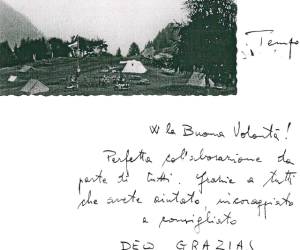 Tempo
W la Buona Volontà!
Perfetta collaborazione da
parte di tutti. Grazie a tutti
che avete aiutato, incoraggiato
e consigliato
DEO GRAZIAS